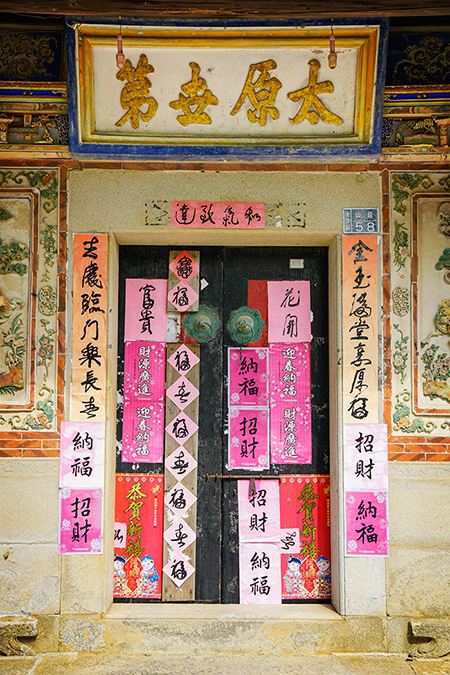 太原世第
和氣致達
58
金玉滿堂享厚福
吉慶臨門樂長春
花開
富貴
福
迎春納福
財源廣進
納福
招財
財源廣進
迎春納福
福
春
福
春
福
春
春
招財
納福
招財
納福
納福
招財
恭賀新禧
恭賀新禧